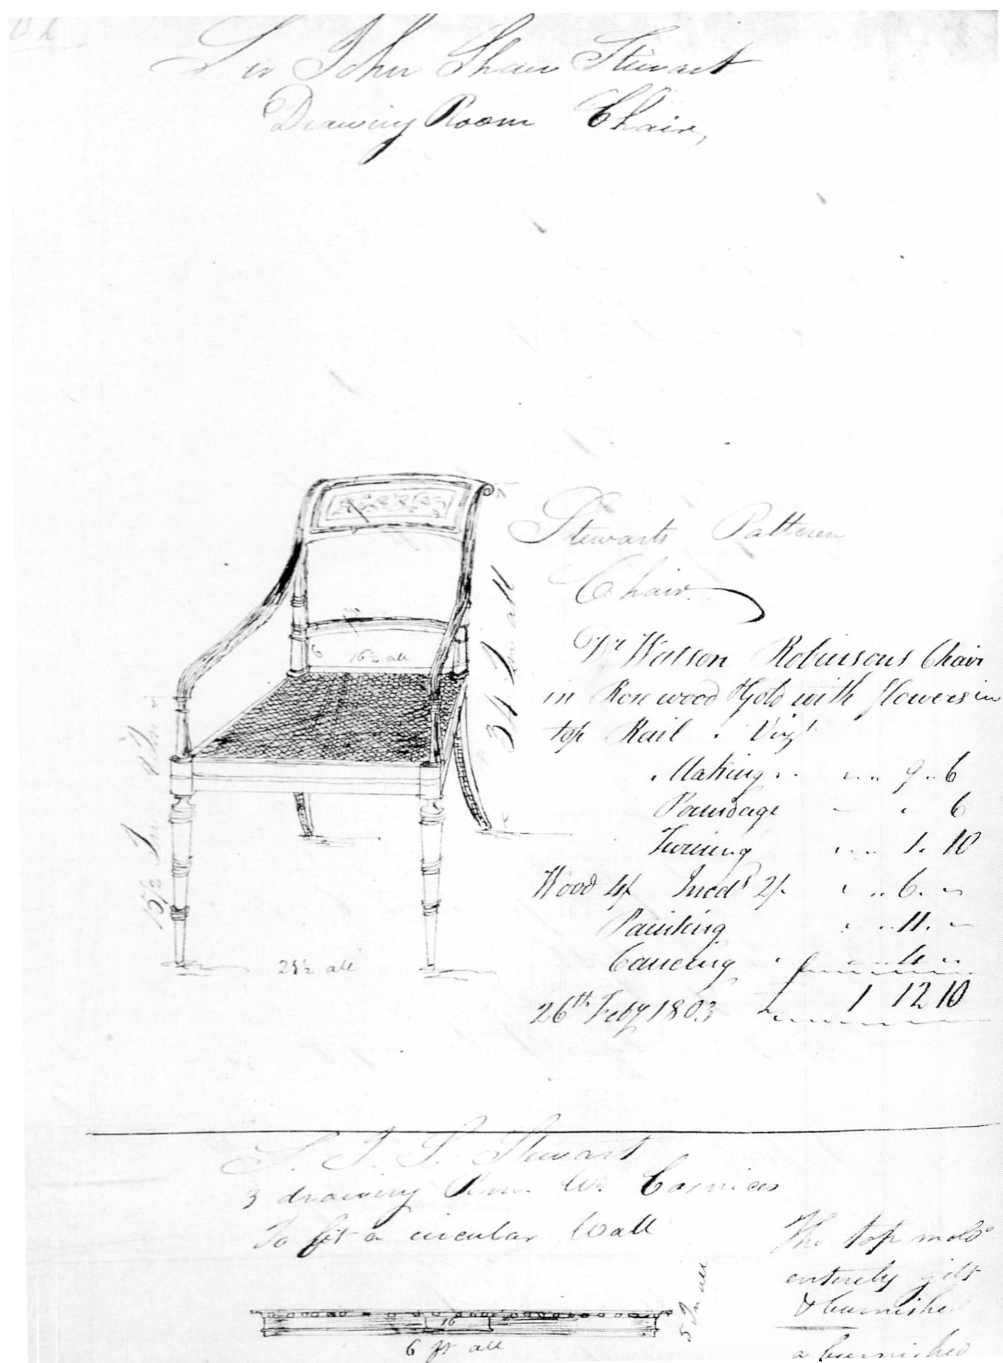 Sir John Shaw Stewart
Drawing Room Chair,
Stewarts Patteren
Chair.
Wm Watson Robinsons Chair
in Rosewood & Gold with flowers in
top Rail . Vizt
Making 9 .. 6
Poundage 6
Turning 1 . 10
Wood 4/ Incds 2/. 6 . "
Painting 11 . "
Caneing 4 "
26th Feby 1803 £ 1 12 10
16½ all
34 In all
25½ all
S. J. S. Stewart
3 drawing Rm. W. Cornices
To fit a circular Wall
The top mold
entirely gilt
& burnished
a burnished
16
6 ft all
5 In all